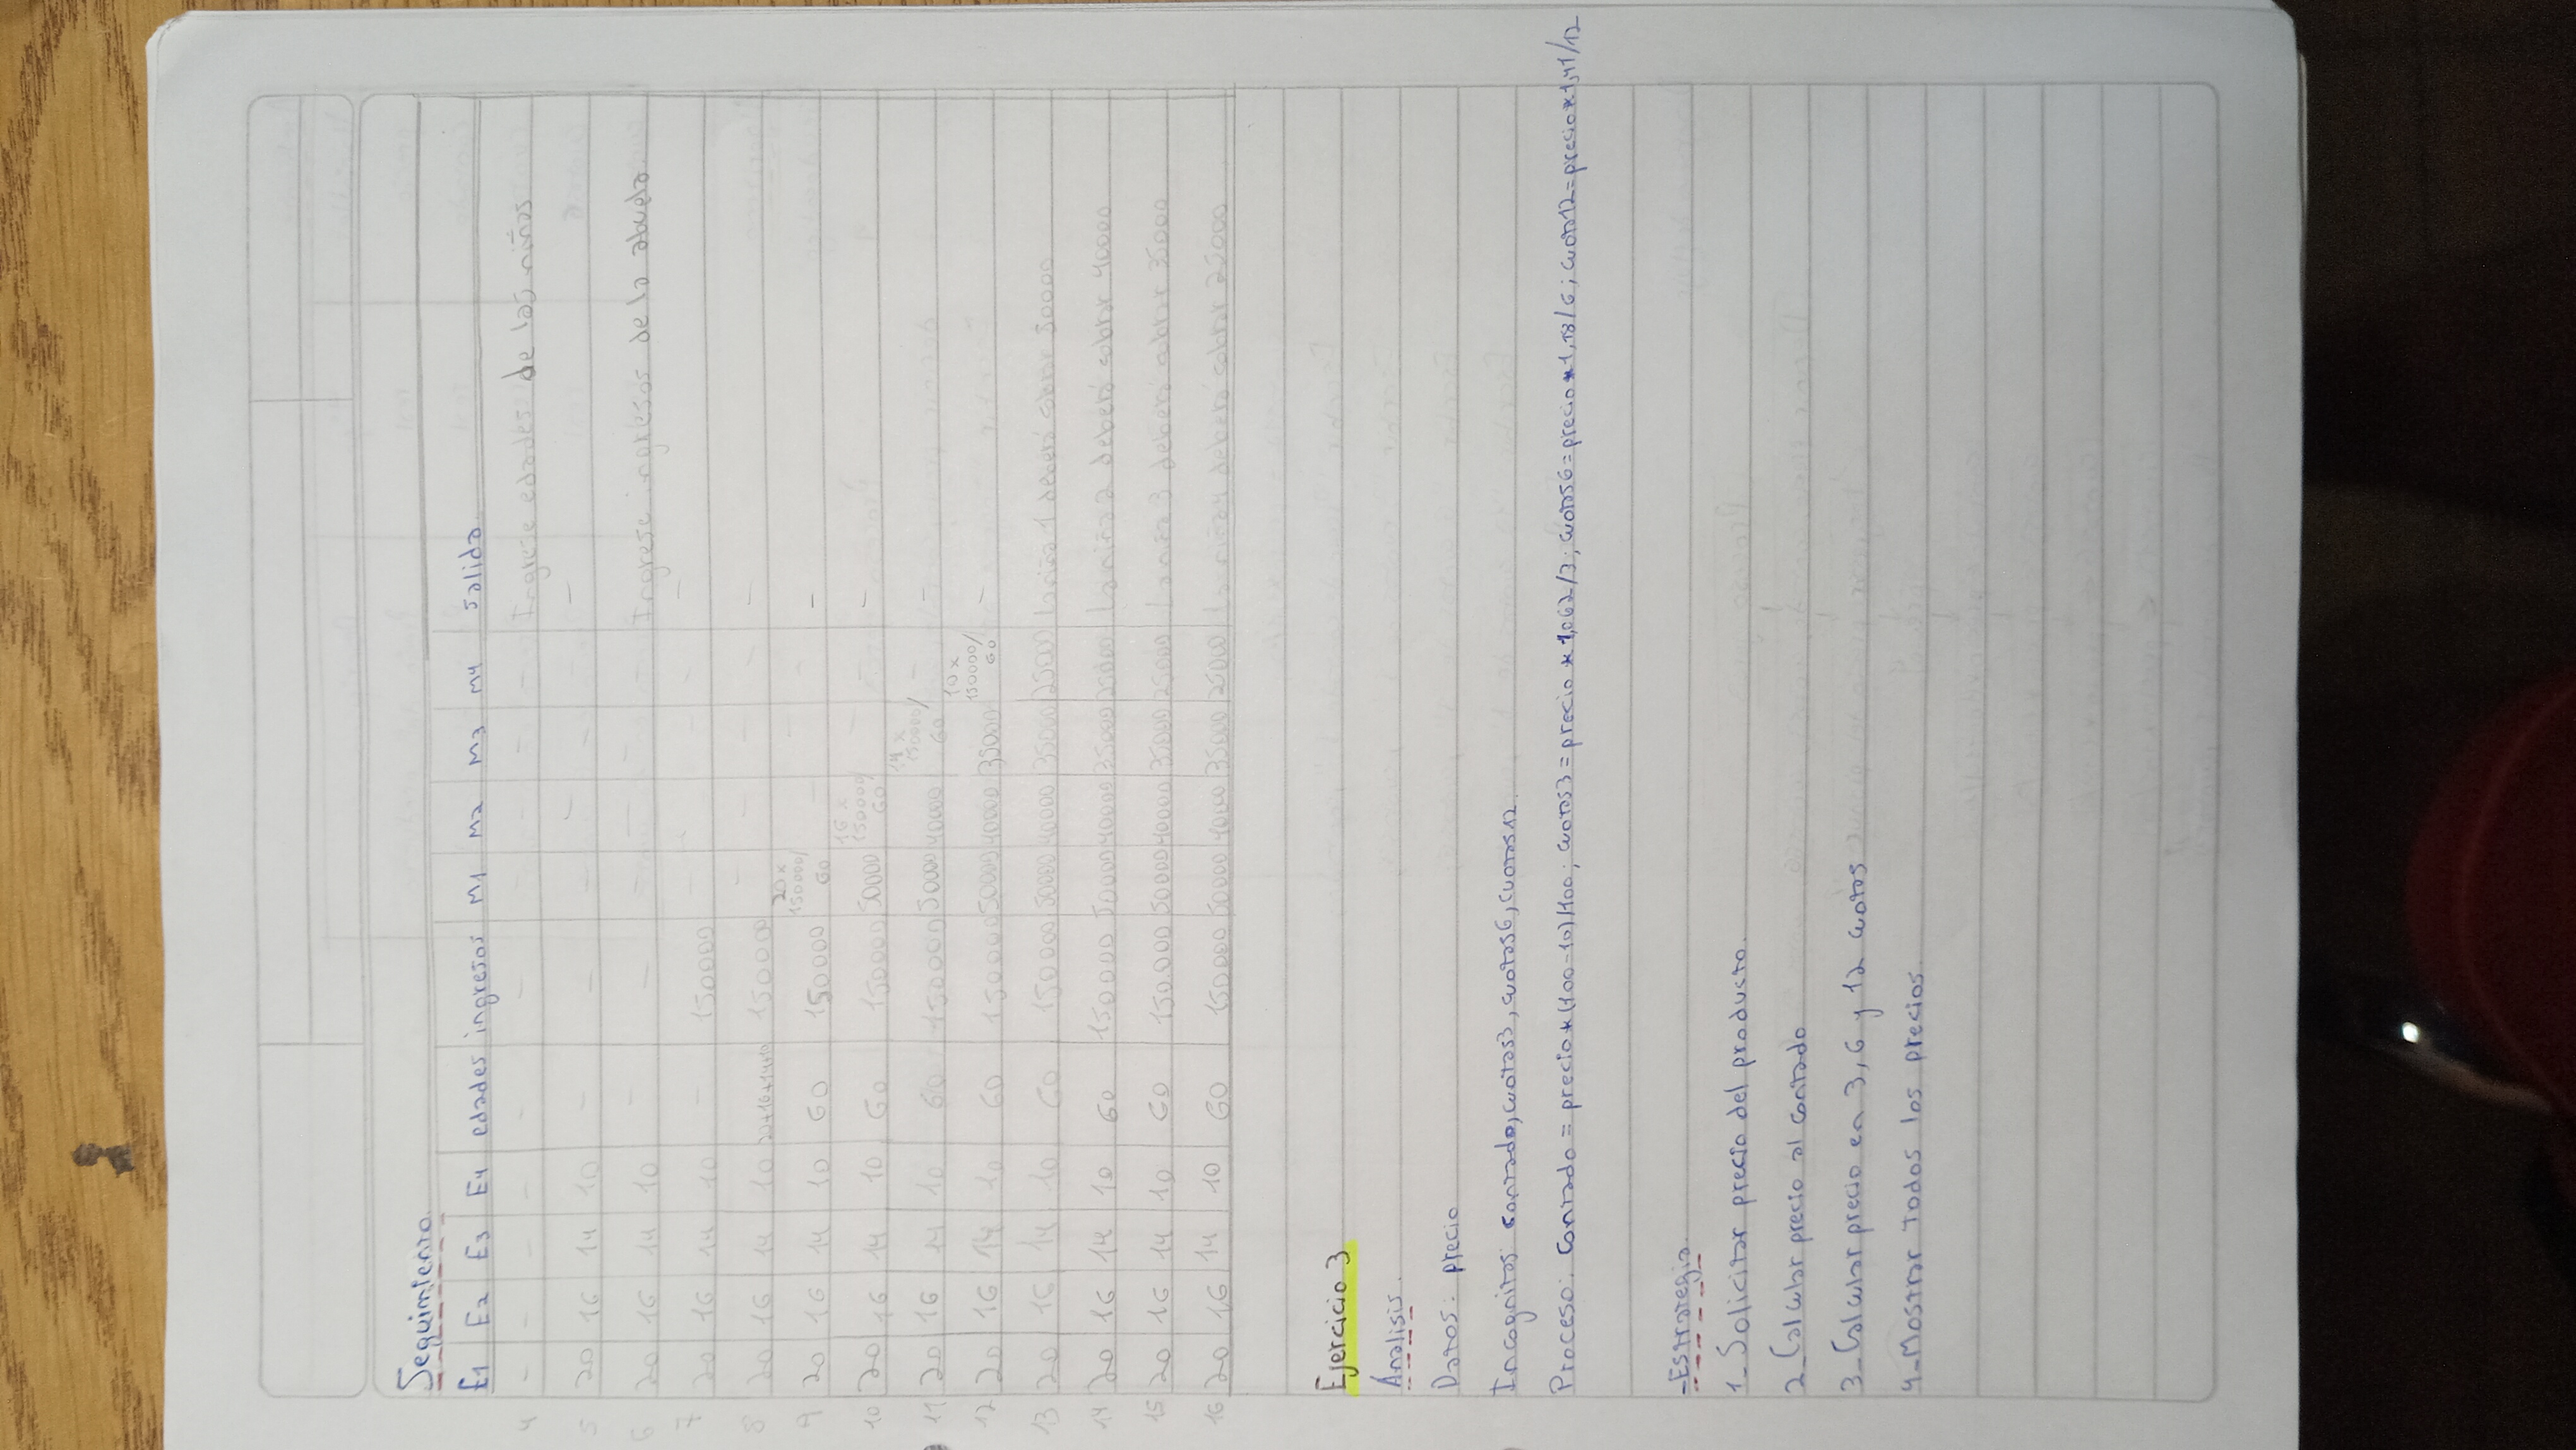 Seguimiento.
E1 E2 E3 E4 edades ingresos M1 M2 M3 M4 Salida
4 - - - - - - - - - - Ingrese edades de las niñas
5 20 16 14 10 - - - - - -
6 20 16 14 10 - - - - - Ingrese ingresos de la abuela
7 20 16 14 10 - 150000 - - - - -
8 20 16 14 10 20+16+14+10 150000 - - - - -
9 20 16 14 10 60 150000 20x150000/60 - - - -
10 20 16 14 10 60 150000 50000 16x150000/60 - - -
11 20 16 14 10 60 150000 50000 40000 14x150000/60 - -
12 20 16 14 10 60 150000 50000 40000 35000 10x150000/60 -
13 20 16 14 10 60 150000 50000 40000 35000 25000 La niña 1 deberá cobrar 50000
14 20 16 14 10 60 150000 50000 40000 35000 25000 La niña 2 deberá cobrar 40000
15 20 16 14 10 60 150.000 50000 40000 35000 25000 La niña 3 deberá cobrar 35000
16 20 16 14 10 60 150000 50000 40000 35000 25000 La niña 4 deberá cobrar 25000
Ejercicio 3
Analisis.
Datos: precio
Incognitas: contado, cuotas3, cuotas6, cuotas12.
Proceso: Contado = precio*(100-10)/100; cuotas3 = precio * 1,062/3; cuotas6 = precio*1,18/6; cuota12 = precio*1,41/12
-Estrategia.
1_ Solicitar precio del producto.
2_ Calcular precio al contado
3_ Calcular precio en 3, 6 y 12 cuotas
4_ Mostrar todos los precios.